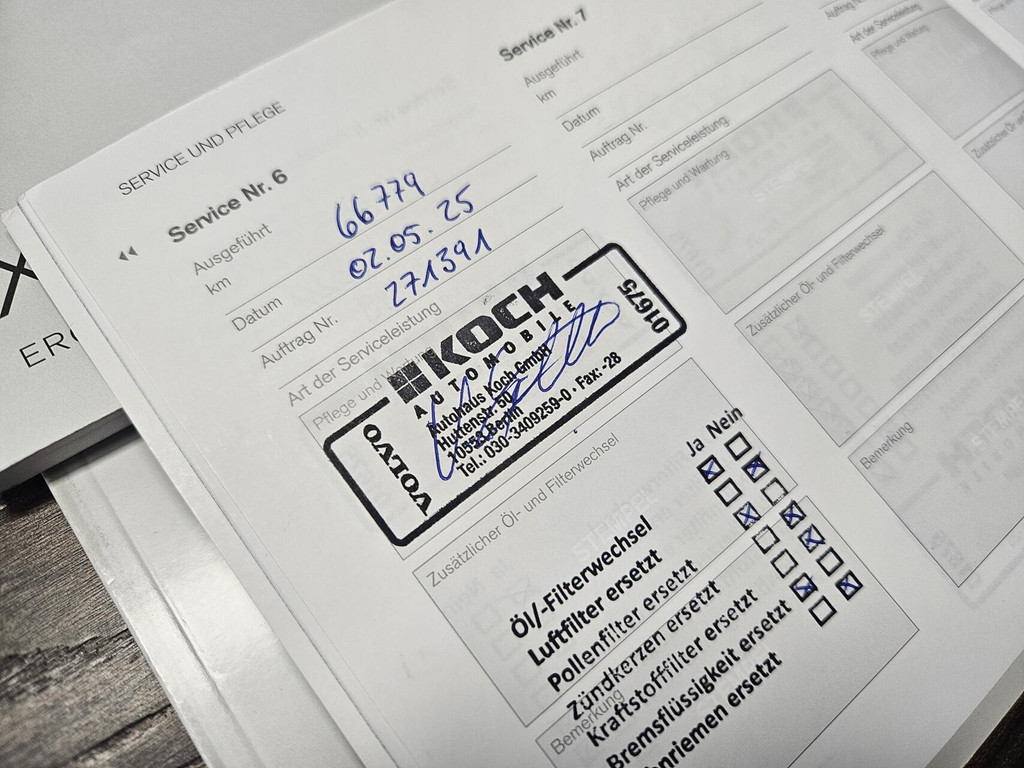 SERVICE UND PFLEGE
Service Nr. 6
Ausgeführt
km 66779
Datum 02.05.25
Auftrag Nr. 271391
Art der Serviceleistung
Pflege und
KOCH
AUTOMOBILE
VOLVO
Autohaus Koch GmbH
Huttenstr. 50
10553 Berlin
Tel.: 030-3409259-0 · Fax: -28
01675
Zusätzlicher Öl- und Filterwechsel
Ja Nein
Öl/-Filterwechsel
Luftfilter ersetzt
Pollenfilter ersetzt
Zündkerzen ersetzt
Kraftstoffilter ersetzt
Bremsflüssigkeit ersetzt
nriemen ersetzt
Bemerkung
Service Nr. 7
Ausgeführt
km
Datum
Auftrag Nr.
Art der Serviceleistung
Pflege und Wartung
Zusätzlicher Öl- und Filterwechsel
Bemerkung
Auftrag Nr.
Art der Serviceleistung
Pflege und Wartung
Zusätzliche Öl-
X
ERG